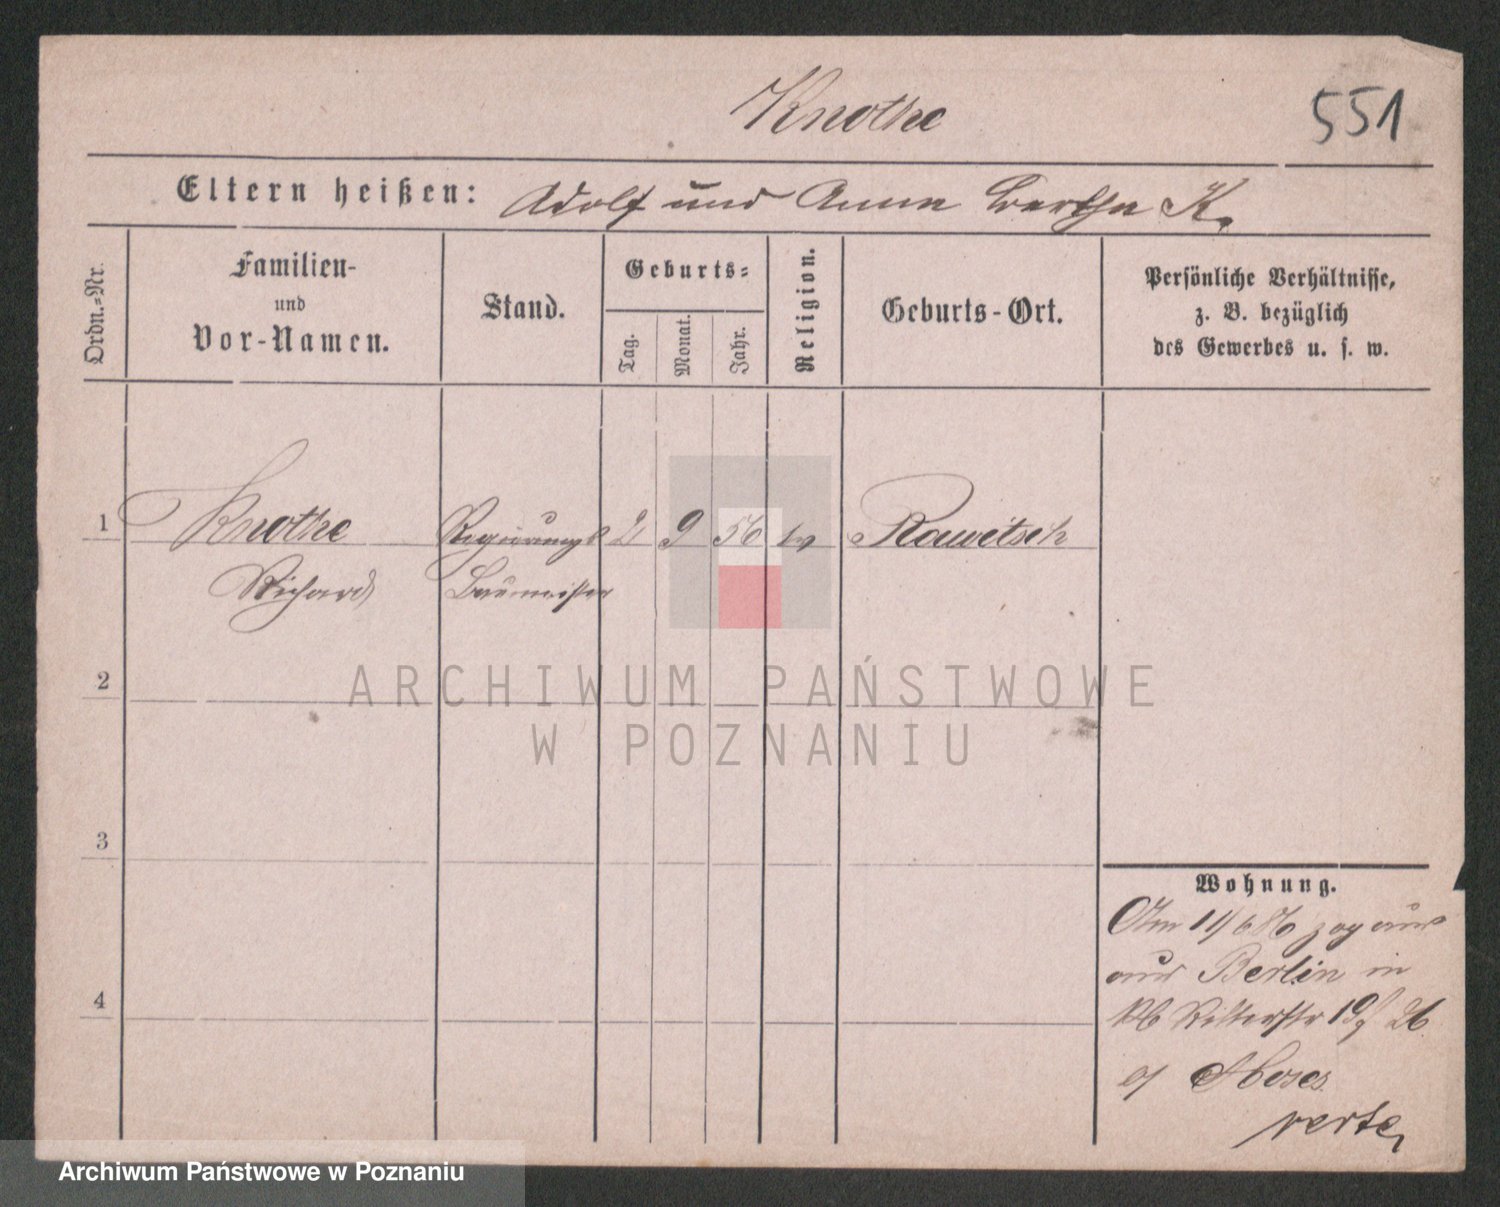 Knothe
551
Eltern heißen: Adolf und Anna Bertha K.
Ordn.=Nr.
Familien-
und
Vor-Namen.
Stand.
Geburts=
Tag.
Monat.
Jahr.
Religion.
Geburts-Ort.
Persönliche Verhältnisse,
z. B. bezüglich
des Gewerbes u. s. w.
1 Knothe Regierungs 2 9 56 ev Rawitsch
Richard Baumeister
2
3
4
Wohnung.
Am 11/6 86 zog
aus Berlin in
Ritterstr 19
Moses
verte
ARCHIWUM PAŃSTWOWE
W POZNANIU
Archiwum Państwowe w Poznaniu